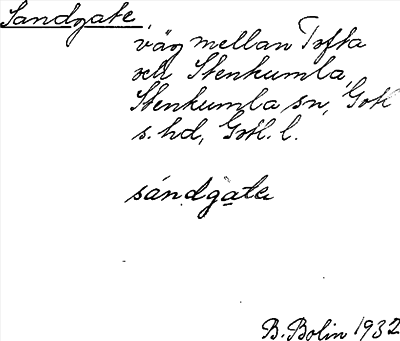 Sandgate,
väg mellan Tofta
och Stenkumla,
Stenkumla sn, Gotl
s. hd, Gotl. l.
sándgate
B. Bolin 1932